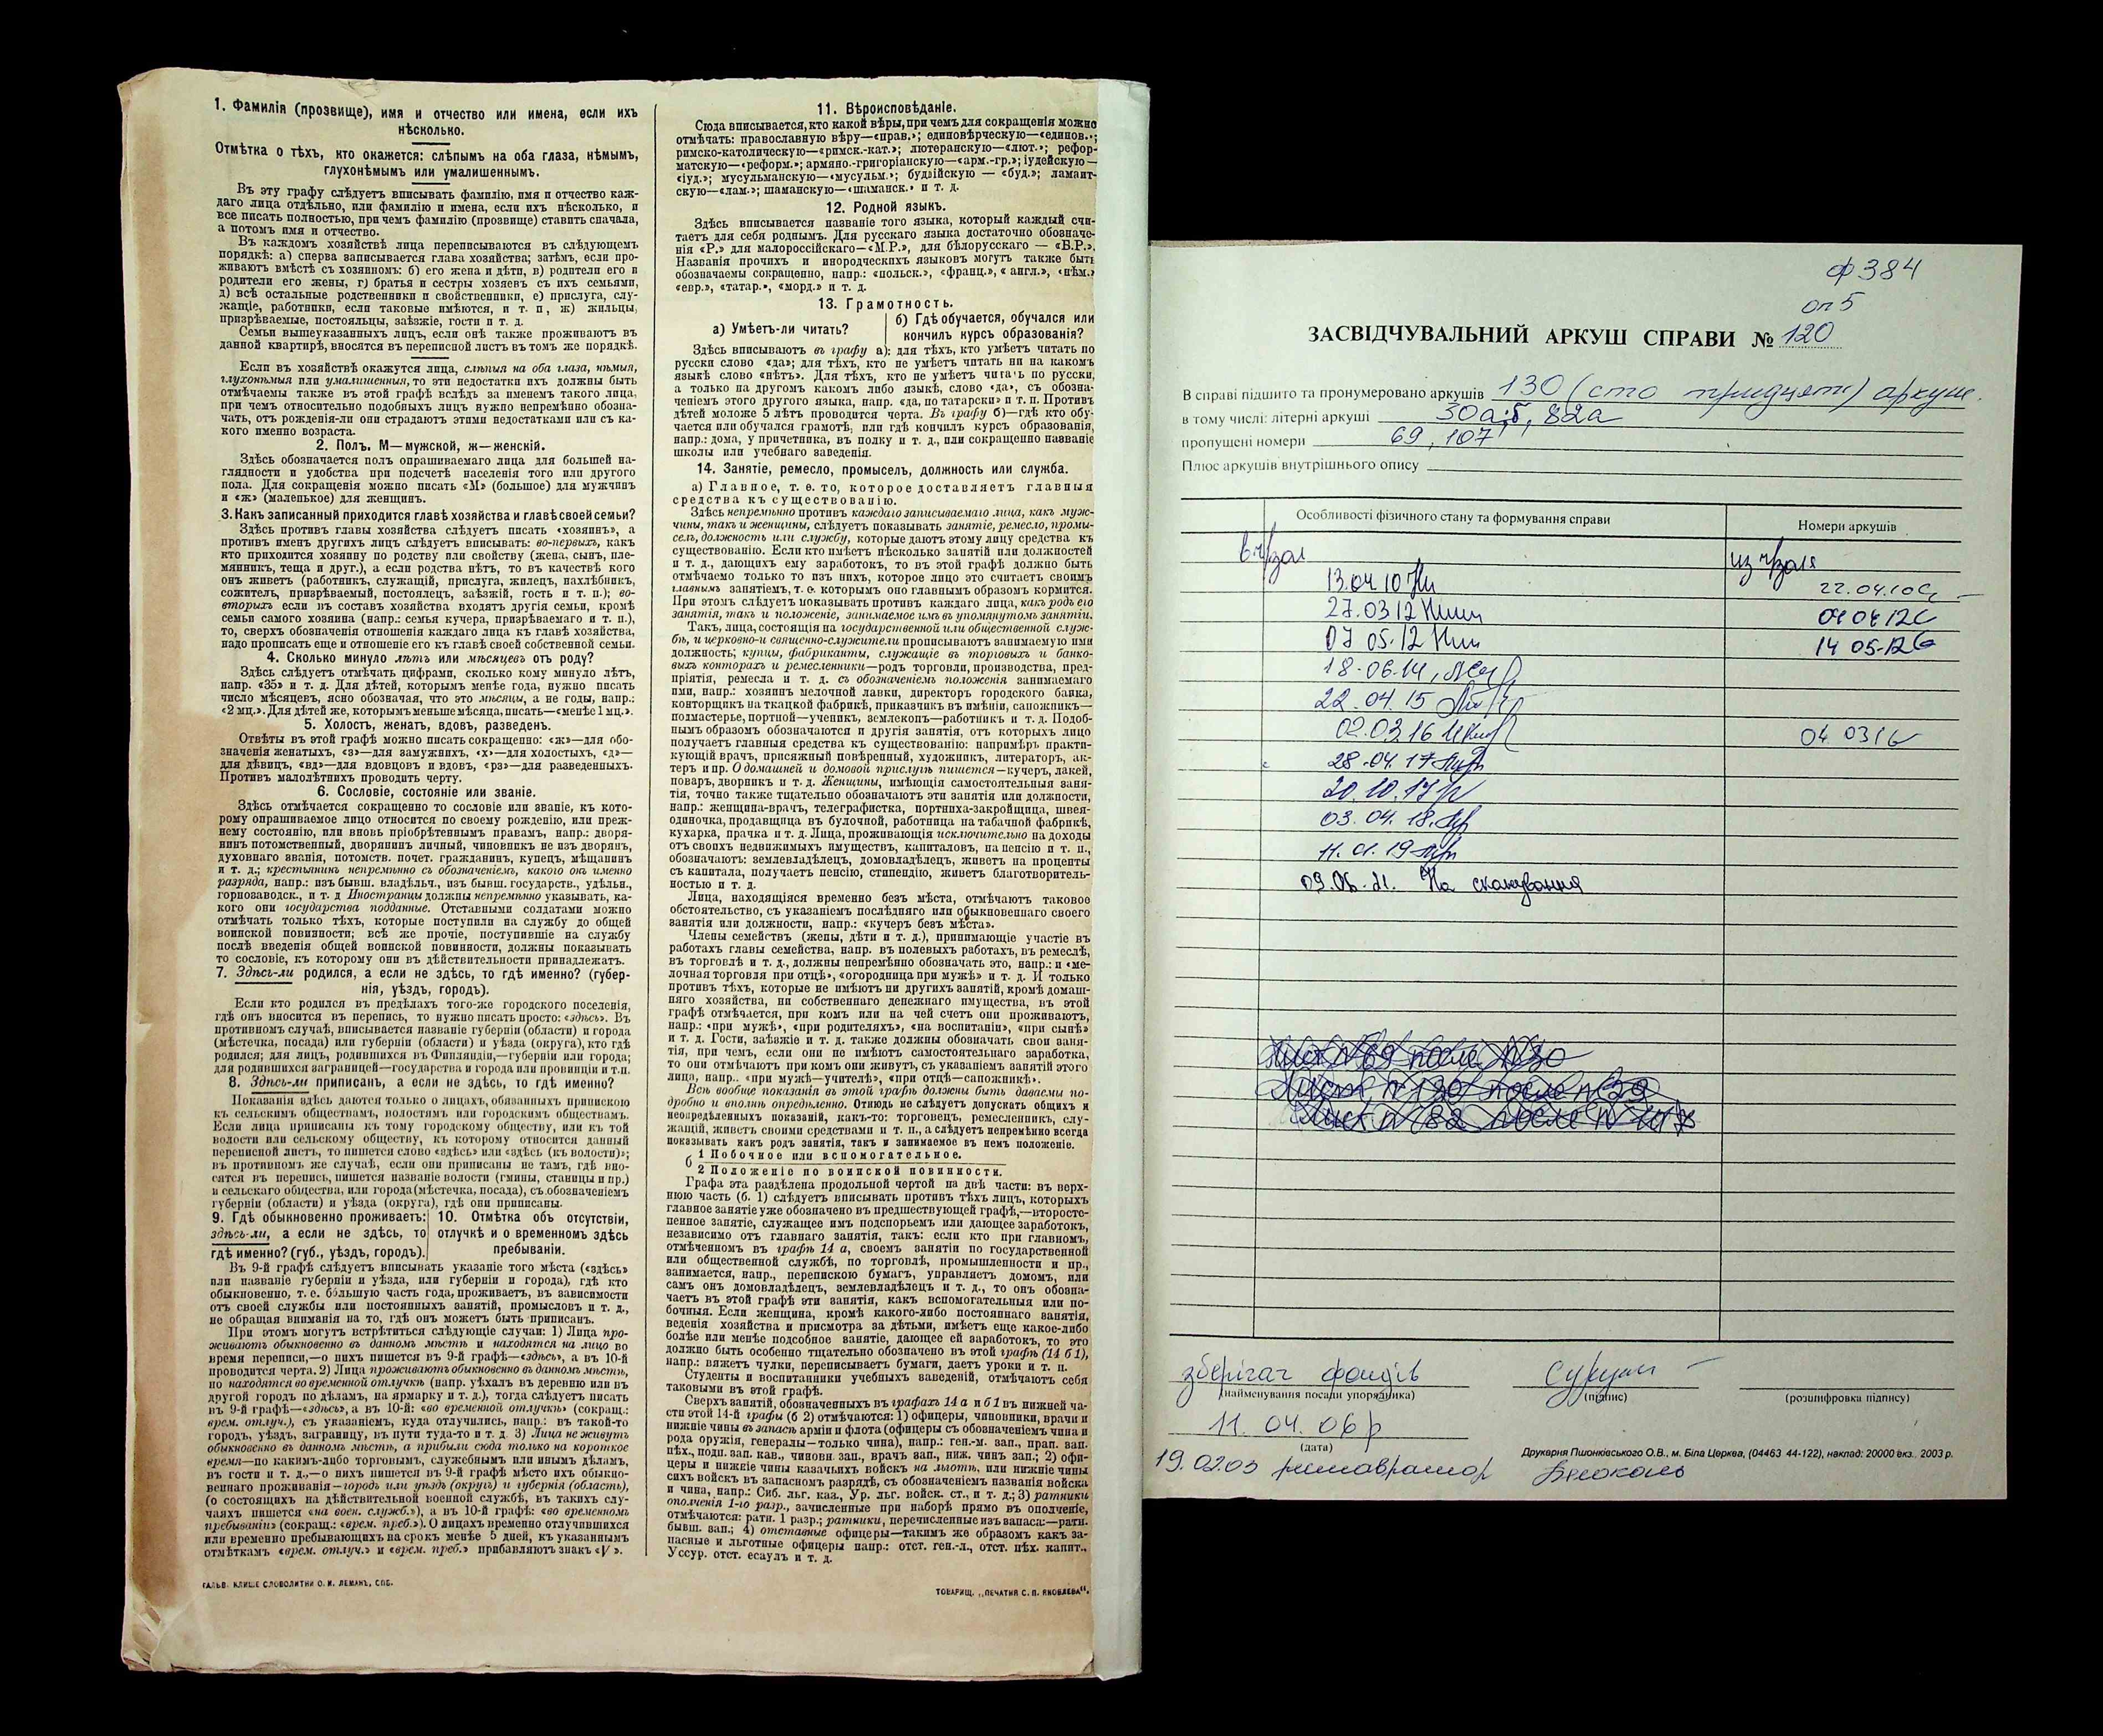 1. Фамилія (прозвище), имя и отчество или имена, если ихъ
нѣсколько.
Отмѣтка о тѣхъ, кто окажется: слѣпымъ на оба глаза, нѣмымъ,
глухонѣмымъ или умалишеннымъ.
Въ эту графу слѣдуетъ вписывать фамилію, имя и отчество каж-
даго лица отдѣльно, или фамилію и имена, если ихъ нѣсколько, и
все писать полностью, при чемъ фамилію (прозвище) ставить сначала,
а потомъ имя и отчество.
Въ каждомъ хозяйствѣ лица переписываются въ слѣдующемъ
порядкѣ: а) сперва записывается глава хозяйства; затѣмъ, если про-
живаютъ вмѣстѣ съ хозяиномъ: б) его жена и дѣти, в) родители его и
родители его жены, г) братья и сестры хозяевъ съ ихъ семьями,
д) всѣ остальные родственники и свойственники, е) прислуга, слу-
жащіе, работники, если таковые имѣются, и т. п, ж) жильцы,
призрѣваемые, постояльцы, заѣзжіе, гости и т. д.
Семьи вышеуказанныхъ лицъ, если онѣ также проживаютъ въ
данной квартирѣ, вносятся въ переписной листъ въ томъ же порядкѣ.
Если въ хозяйствѣ окажутся лица, слѣпыя на оба глаза, нѣмыя,
глухонѣмыя или умалишенныя, то эти недостатки ихъ должны быть
отмѣчаемы также въ этой графѣ вслѣдъ за именемъ такого лица,
при чемъ относительно подобныхъ лицъ нужно непремѣнно обозна-
чать, отъ рожденія-ли они страдаютъ этими недостатками или съ ка-
кого именно возраста.
2. Полъ. М—мужской, ж—женскій.
Здѣсь обозначается полъ опрашиваемаго лица для большей на-
глядности и удобства при подсчетѣ населенія того или другого
пола. Для сокращенія можно писать «М» (большое) для мужчинъ
и «ж» (маленькое) для женщинъ.
3. Какъ записанный приходится главѣ хозяйства и главѣ своей семьи?
Здѣсь противъ главы хозяйства слѣдуетъ писать «хозяинъ», а
противъ именъ другихъ лицъ слѣдуетъ вписывать: во-первыхъ, какъ
кто приходится хозяину по родству или свойству (жена, сынъ, пле-
мянникъ, теща и друг.), а если родства нѣтъ, то въ качествѣ кого
онъ живетъ (работникъ, служащій, прислуга, жилецъ, нахлѣбникъ,
сожитель, призрѣваемый, постоялецъ, заѣзжій, гость и т. п.); во-
вторыхъ если въ составъ хозяйства входятъ другія семьи, кромѣ
семьи самого хозяина (напр.: семья кучера, призрѣваемаго и т. п.),
то, сверхъ обозначенія отношенія каждаго лица къ главѣ хозяйства,
надо прописать еще и отношеніе его къ главѣ своей собственной семьи.
4. Сколько минуло лѣтъ или мѣсяцевъ отъ роду?
Здѣсь слѣдуетъ отмѣчать цифрами, сколько кому минуло лѣтъ,
напр. «35» и т. д. Для дѣтей, которымъ менѣе года, нужно писать
число мѣсяцевъ, ясно обозначая, что это мѣсяцы, а не годы, напр.:
«2 мц.». Для дѣтей же, которымъ меньше мѣсяца, писать—«менѣе 1 мц.».
5. Холостъ, женатъ, вдовъ, разведенъ.
Отвѣты въ этой графѣ можно писать сокращенно: «ж»—для обо-
значенія женатыхъ, «з»—для замужнихъ, «х»—для холостыхъ, «д»—
для дѣвицъ, «вд»—для вдовцовъ и вдовъ, «рз»—для разведенныхъ.
Противъ малолѣтнихъ проводить черту.
6. Сословіе, состояніе или званіе.
Здѣсь отмѣчается сокращенно то сословіе или званіе, къ кото-
рому опрашиваемое лицо относится по своему рожденію, или преж-
нему состоянію, или вновь пріобрѣтеннымъ правамъ, напр.: дворя-
нинъ потомственный, дворянинъ личный, чиновникъ не изъ дворянъ,
духовнаго званія, потомств. почет. гражданинъ, купецъ, мѣщанинъ
и т. д.; крестьянинъ непремѣнно съ обозначеніемъ, какого онъ именно
разряда, напр.: изъ бывш. владѣльч., изъ бывш. государств., удѣльн.,
горнозаводск., и т. д Иностранцы должны непремѣнно указывать, ка-
кого они государства подданные. Отставными солдатами можно
отмѣчать только тѣхъ, которые поступили на службу до общей
воинской повинности; всѣ же прочіе, поступившіе на службу
послѣ введенія общей воинской повинности, должны показывать
то сословіе, къ которому они въ дѣйствительности принадлежатъ.
7. Здѣсь-ли родился, а если не здѣсь, то гдѣ именно? (губер-
нія, уѣздъ, городъ).
Если кто родился въ предѣлахъ того-же городского поселенія,
гдѣ онъ вносится въ перепись, то нужно писать просто: «здѣсь». Въ
противномъ случаѣ, вписывается названіе губерніи (области) и города
(мѣстечка, посада) или губерніи (области) и уѣзда (округа), кто гдѣ
родился; для лицъ, родившихся въ Финляндіи,—губерніи или города;
для родившихся заграницей—государства и города или провинціи и т.п.
8. Здѣсь-ли приписанъ, а если не здѣсь, то гдѣ именно?
Показанія здѣсь даются только о лицахъ, обязанныхъ припискою
къ сельскимъ обществамъ, волостямъ или городскимъ обществамъ.
Если лица приписаны къ тому городскому обществу, или къ той
волости или сельскому обществу, къ которому относится данный
переписной листъ, то пишется слово «здѣсь» или «здѣсь (къ волости)»;
въ противномъ же случаѣ, если они приписаны не тамъ, гдѣ вно-
сятся въ перепись, пишется названіе волости (гмины, станицы и пр.)
и сельскаго общества, или города (мѣстечка, посада), съ обозначеніемъ
губерніи (области) и уѣзда (округа), гдѣ они приписаны.
9. Гдѣ обыкновенно проживаетъ:
здѣсь-ли, а если не здѣсь, то
гдѣ именно? (губ., уѣздъ, городъ).
10. Отмѣтка объ отсутствіи,
отлучкѣ и о временномъ здѣсь
пребываніи.
Въ 9-й графѣ слѣдуетъ вписывать указаніе того мѣста («здѣсь»
или названіе губерніи и уѣзда, или губерніи и города), гдѣ кто
обыкновенно, т. е. бо́льшую часть года, проживаетъ, въ зависимости
отъ своей службы или постоянныхъ занятій, промысловъ и т. д.,
не обращая вниманія на то, гдѣ онъ можетъ быть приписанъ.
При этомъ могутъ встрѣтиться слѣдующіе случаи: 1) Лица про-
живаютъ обыкновенно въ данномъ мѣстѣ и находятся на лицо во
время переписи,—о нихъ пишется въ 9-й графѣ—«здѣсь», а въ 10-й
проводится черта. 2) Лица проживаютъ обыкновенно въ данномъ мѣстѣ,
но находятся во временной отлучкѣ (напр. уѣхалъ въ деревню или въ
другой городъ по дѣламъ, на ярмарку и т. д.), тогда слѣдуетъ писать
въ 9-й графѣ—«здѣсь», а въ 10-й: «во временной отлучкѣ» (сокращ.:
врем. отлуч.), съ указаніемъ, куда отлучились, напр.: въ такой-то
городъ, уѣздъ, заграницу, въ пути туда-то и т. д. 3) Лица не живутъ
обыкновенно въ данномъ мѣстѣ, а прибыли сюда только на короткое
время—по какимъ-либо торговымъ, служебнымъ или инымъ дѣламъ,
въ гости и т. д.,—о нихъ пишется въ 9-й графѣ мѣсто ихъ обыкно-
веннаго проживанія—городъ или уѣздъ (округъ) и губернія (область),
(о состоящихъ на дѣйствительной военной службѣ, въ такихъ слу-
чаяхъ пишется «на воен. служб.»), а въ 10-й графѣ: «во временномъ
пребываніи» (сокращ.: «врем. преб.»). О лицахъ временно отлучившихся
или временно пребывающихъ на срокъ менѣе 5 дней, къ указаннымъ
отмѣткамъ «врем. отлуч.» и «врем. преб.» прибавляютъ знакъ «V».
ГАЛЬВ. КЛИШЕ СЛОВОЛИТНИ О. И. ЛЕМАНЪ, СПБ.
11. Вѣроисповѣданіе.
Сюда вписывается, кто какой вѣры, при чемъ для сокращенія можно
отмѣчать: православную вѣру—«прав.»; единовѣрческую—«единов.»;
римско-католическую—«римск.-кат.»; лютеранскую—«лют.»; рефор-
матскую—«реформ.»; армяно.-григоріанскую—«арм.-гр.»; іудейскую—
«іуд.»; мусульманскую—«мусульм.»; буддійскую — «буд.»; ламаит-
скую—«лам.»; шаманскую—«шаманск.» и т. д.
12. Родной языкъ.
Здѣсь вписывается названіе того языка, который каждый счи-
таетъ для себя роднымъ. Для русскаго языка достаточно обозначе-
нія «Р.» для малороссійскаго—«М.Р.», для бѣлорусскаго — «Б.Р.».
Названія прочихъ и инородческихъ языковъ могутъ также быть
обозначаемы сокращенно, напр.: «польск.», «франц.», « англ.», «нѣм.»
«евр.», «татар.», «морд.» и т. д.
13. Грамотность.
а) Умѣетъ-ли читать?
б) Гдѣ обучается, обучался или
кончилъ курсъ образованія?
Здѣсь вписываютъ въ графу а): для тѣхъ, кто умѣетъ читать по
русски слово «да»; для тѣхъ, кто не умѣетъ читать ни на какомъ
языкѣ слово «нѣтъ». Для тѣхъ, кто не умѣетъ читать по русски,
а только на другомъ какомъ либо языкѣ, слово «да», съ обозна-
ченіемъ этого другого языка, напр. «да, по татарски» и т. п. Противъ
дѣтей моложе 5 лѣтъ проводится черта. Въ графу б)—гдѣ кто обу-
чается или обучался грамотѣ, или гдѣ кончилъ курсъ образованія,
напр.: дома, у причетника, въ полку и т. д., или сокращенно названіе
школы или учебнаго заведенія.
14. Занятіе, ремесло, промыселъ, должность или служба.
а) Главное, т. е. то, которое доставляетъ главныя
средства къ существованію.
Здѣсь непремѣнно противъ каждаго записываемаго лица, какъ муж-
чины, такъ и женщины, слѣдуетъ показывать занятіе, ремесло, промы-
селъ, должность или службу, которые даютъ этому лицу средства къ
существованію. Если кто имѣетъ нѣсколько занятій или должностей
и т. д., дающихъ ему заработокъ, то въ этой графѣ должно быть
отмѣчаемо только то изъ нихъ, которое лицо это считаетъ своимъ
главнымъ занятіемъ, т. е. которымъ оно главнымъ образомъ кормится.
При этомъ слѣдуетъ показывать противъ каждаго лица, какъ родъ его
занятія, такъ и положеніе, занимаемое имъ въ упомянутомъ занятіи.
Такъ, лица, состоящія на государственной или общественной служ-
бѣ, и церковно-и священно-служители прописываютъ занимаемую ими
должность; купцы, фабриканты, служащіе въ торговыхъ и банко-
выхъ конторахъ и ремесленники—родъ торговли, производства, пред-
пріятія, ремесла и т. д. съ обозначеніемъ положенія занимаемаго
ими, напр.: хозяинъ мелочной лавки, директоръ городского банка,
конторщикъ на ткацкой фабрикѣ, приказчикъ въ имѣніи, сапожникъ—
подмастерье, портной—ученикъ, землекопъ—работникъ и т. д. Подоб-
нымъ образомъ обозначаются и другія занятія, отъ которыхъ лицо
получаетъ главныя средства къ существованію: напримѣръ практи-
кующій врачъ, присяжный повѣренный, художникъ, литераторъ, ак-
теръ и пр. О домашней и домовой прислугѣ пишется—кучеръ, лакей,
поваръ, дворникъ и т. д. Женщины, имѣющія самостоятельныя заня-
тія, точно также тщательно обозначаютъ эти занятія или должности,
напр.: женщина-врачъ, телеграфистка, портниха-закройщица, швея-
одиночка, продавщица въ булочной, работница на табачной фабрикѣ,
кухарка, прачка и т. д. Лица, проживающія исключительно на доходы
отъ своихъ недвижимыхъ имуществъ, капиталовъ, на пенсію и т. п.,
обозначаютъ: землевладѣлецъ, домовладѣлецъ, живетъ на проценты
съ капитала, получаетъ пенсію, стипендію, живетъ благотворитель-
ностью и т. д.
Лица, находящіяся временно безъ мѣста, отмѣчаютъ таковое
обстоятельство, съ указаніемъ послѣдняго или обыкновеннаго своего
занятія или должности, напр.: «кучеръ безъ мѣста».
Члены семействъ (жены, дѣти и т. д.), принимающіе участіе въ
работахъ главы семейства, напр. въ полевыхъ работахъ, въ ремеслѣ,
въ торговлѣ и т. д., должны непремѣнно обозначать это, напр.: и «ме-
лочная торговля при отцѣ», «огородница при мужѣ» и т. д. И только
противъ тѣхъ, которые не имѣютъ ни другихъ занятій, кромѣ домаш-
няго хозяйства, ни собственнаго денежнаго имущества, въ этой
графѣ отмѣчается, при комъ или на чей счетъ они проживаютъ,
напр.: «при мужѣ», «при родителяхъ», «на воспитаніи», «при сынѣ»
и т. д. Гости, заѣзжіе и т. д. также должны обозначать свои заня-
тія, при чемъ, если они не имѣютъ самостоятельнаго заработка,
то они отмѣчаютъ при комъ они живутъ, съ указаніемъ занятій этого
лица, напр.. «при мужѣ—учителѣ», «при отцѣ—сапожникѣ».
Всѣ вообще показанія въ этой графѣ должны быть даваемы по-
дробно и вполнѣ опредѣленно. Отнюдь не слѣдуетъ допускать общихъ и
неопредѣленныхъ показаній, какъ-то: торговецъ, ремесленникъ, слу-
жащій, живетъ своими средствами и т. п., а слѣдуетъ непремѣнно всегда
показывать какъ родъ занятія, такъ и занимаемое въ немъ положеніе.
1 Побочное или вспомогательное.
б
2 Положеніе по воинской повинности.
Графа эта раздѣлена продольной чертой на двѣ части: въ верх-
нюю часть (б. 1) слѣдуетъ вписывать противъ тѣхъ лицъ, которыхъ
главное занятіе уже обозначено въ предшествующей графѣ,—второсте-
пенное занятіе, служащее имъ подспорьемъ или дающее заработокъ,
независимо отъ главнаго занятія, такъ: если кто при главномъ,
отмѣченномъ въ графѣ 14 а, своемъ занятіи по государственной
или общественной службѣ, по торговлѣ, промышленности и пр.,
занимается, напр., перепискою бумагъ, управляетъ домомъ, или
самъ онъ домовладѣлецъ, землевладѣлецъ и т. д., то онъ обозна-
чаетъ въ этой графѣ эти занятія, какъ вспомогательныя или по-
бочныя. Если женщина, кромѣ какого-либо постояннаго занятія,
веденія хозяйства и присмотра за дѣтьми, имѣетъ еще какое-либо
болѣе или менѣе подсобное занятіе, дающее ей заработокъ, то это
должно быть особенно тщательно обозначено въ этой графѣ (14 б 1),
напр.: вяжетъ чулки, переписываетъ бумаги, даетъ уроки и т. п.
Студенты и воспитанники учебныхъ заведеній, отмѣчаютъ себя
таковыми въ этой графѣ.
Сверхъ занятій, обозначенныхъ въ графахъ 14 а и б 1 въ нижней ча-
сти этой 14-й графы (б 2) отмѣчаются: 1) офицеры, чиновники, врачи и
нижніе чины въ запасѣ арміи и флота (офицеры съ обозначеніемъ чина и
рода оружія, генералы—только чина), напр.: ген.-м. зап., прап. зап.
пѣх., подп. зап. кав., чиновн. зап., врачъ зап., ниж. чинъ зап.; 2) офи-
церы и нижніе чины казачьихъ войскъ на льготѣ, или нижніе чины
сихъ войскъ въ запасномъ разрядѣ, съ обозначеніемъ названія войска
и чина, напр.: Сиб. льг. каз., Ур. льг. войск. ст., и т. д.; 3) ратники
ополченія 1-го разр., зачисленные при наборѣ прямо въ ополченіе,
отмѣчаются: ратн. 1 разр.; ратники, перечисленные изъ запаса:—ратн.
бывш. зап.; 4) отставные офицеры—такимъ же образомъ какъ за-
пасные и льготные офицеры напр.: отст. ген.-л., отст. пѣх. капит.,
Уссур. отст. есаулъ и т. д.
ТОВАРИЩ. „ПЕЧАТНЯ С. П. ЯКОВЛЕВА".
ф 384
оп 5
ЗАСВІДЧУВАЛЬНИЙ АРКУШ СПРАВИ № 120
В справі підшито та пронумеровано аркушів 130 (сто тридцять) аркуш.
в тому числі: літерні аркуші 30а;б, 82а
пропущені номери 69, 107
Плюс аркушів внутрішнього опису
Особливості фізичного стану та формування справи
Номери аркушів
в ч/зал
из ч/зала
13.04 10
22.04.10
27.03 12
04 04 12
07 05.12
14 05.12
18.06.14
22.04.15
02.03.16
04 03 16
28.04.17
20.10.17
03.04.18
11.01.19
09.06.21. На сканування
Лист № 69 после № 30
Лист № 130 после № 29
Лист № 82 после № 107
зберігач фондів
(найменування посади упорядника)
(підпис)
(розшифровка підпису)
11.04.06 р
(дата)
Друкарня Пшонківського О.В., м. Біла Церква, (04463 44-122), наклад: 20000 екз.. 2003 р.
19.02.03 реставратор